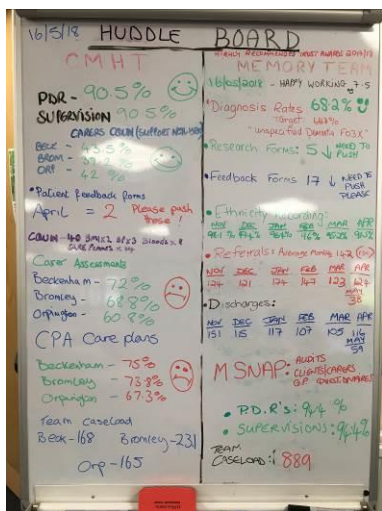 16/5/18 HUDDLE BOARD
HIGHLY RECOMMENDED TRUST AWARDS
CMHT
PDR - 90.5%
SUPERVISION 90.5%
BECK -
BROM -
ORP - 42%
• Patient feedback forms
April = 2 Please push these!
Carer Assessments
Beckenham - 72%
Bromley - 68.8%
Orpington - 60.8%
CPA Care plans
Beckenham - 75%
Bromley - 73.8%
Orpington - 67.3%
Team Caseload
Beck - 168 Bromley - 231
Orp - 165
MEMORY TEAM
16/05/2018 - HAPPY WORKING 7.5
• Diagnosis Rates 68.2%
Target
"Unspecified Dementia F03X"
• Research Forms: 5 ↓ NEED TO PUSH
• Feedback Forms 17 ↓ NEED TO PUSH PLEASE
• Ethnicity Recording:
NOV DEC JAN FEB MAR APR
• Referrals: Average Monthly 142
NOV DEC JAN FEB MAR APR
124 121 124 147 123 124
MAY
38
• Discharges:
NOV DEC JAN FEB MAR APR
151 115 117 107 105 116
MAY
59
MSNAP: AUDITS
CLIENTS/CARERS
G.P. QUESTIONNAIRES
• P.D.R's: 94.4%
• SUPERVISIONS: 94.4%
TEAM CASELOAD: 889